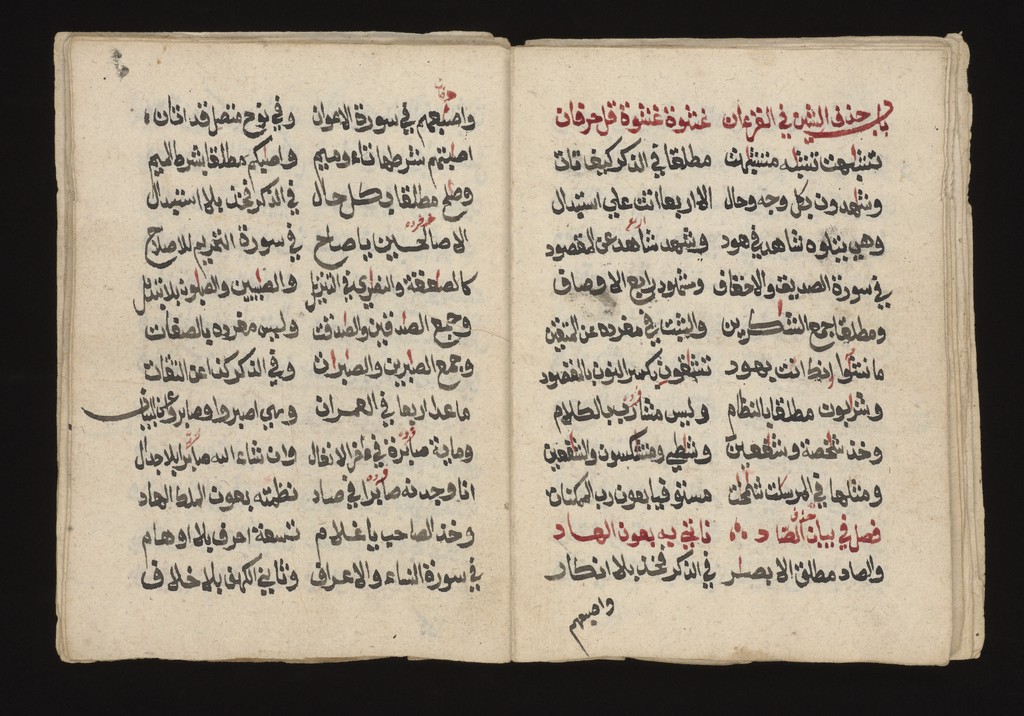 باب حذف الشين في القرءان عشرة عشرة قل حرفان
تشبهت تشبه متشبهت مطلقا في الذكر كيف تات
وشهدون بكل وجه وحال الا اربعا اتت على استبدال
وهي يتلوه شاهد في هود وشهد شاهد عن المقصود
في سورة الصديق والاحقاف ومشهود رابع الاوصاف
ومطلقا جمع الشكرين والبشت في مفرده عن المتقين
ما نشؤا اتت بهود تشقون بكسر النون بالمقصود
وشربون مطلقا بالنظام وليس مشارب بالكلام
وخذ شخصة وشفعين وشطي ومتشكسون والشفعين
ومثلها في المرسلت شمخت مستوفيا بعون رب الممكنات
فصل في بيان حذف الصاد ناتي به بعون الهاد
والصاد مطلق الابصر في الذكر فخذ بلا انكار
واصبعهم
واصبعهم في سورة الاعوان وفي نوح متصل قد اتان
اصبتهم بشرطها تاء وميم واصبكم مطلقا بشرط الميم
وصلح مطلقا بكل حال في الذكر فخذ بلا استبدال
الا صالحين يا صاح في سورة التحريم للاصلاح
كالصعقة والنصرى في التنزيل والصبين والصبون بلا تبديل
وجمع الصدقين والصدقت وليس مفرده بالصفات
وجمع الصبرين والصبرات وفي الذكر كذا عن الثقات
ما عدا اربعا في العمران وهي اصبروا وصابروا عن البيان
وماية صابرة في ءاخر الانفال وان شاء الله صابرا بلا جدال
انا وجدنه صابرا في صاد نظمته بعون الملك الهاد
وخذ لصاحب يا غلام تسعة احرف بلا اوهام
في سورة النساء والاعراف وثاني الكهف بلا خلاف